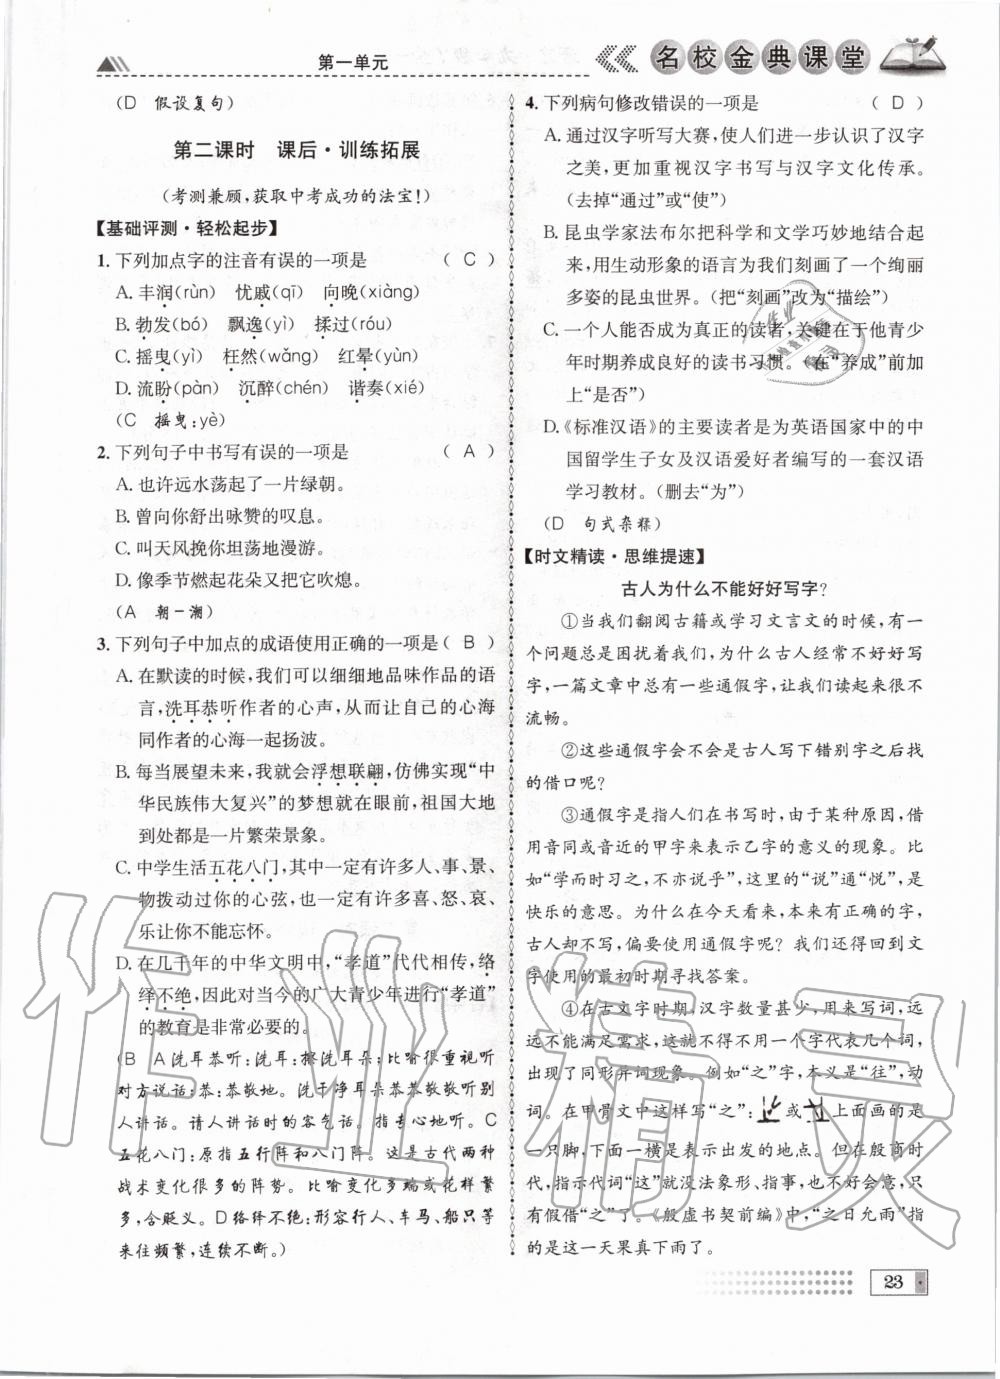 第一单元
名校金典课堂
(D 假设复句)
第二课时 课后·训练拓展
(考测兼顾,获取中考成功的法宝!)
【基础评测·轻松起步】
1. 下列加点字的注音有误的一项是 ( C )
A. 丰润(rùn) 忧戚(qī) 向晚(xiàng)
B. 勃发(bó) 飘逸(yì) 揉过(róu)
C. 摇曳(yì) 枉然(wǎng) 红晕(yùn)
D. 流盼(pàn) 沉醉(chén) 谐奏(xié)
(C 摇曳:yè)
2. 下列句子中书写有误的一项是 ( A )
A. 也许远水荡起了一片绿朝。
B. 曾向你舒出咏赞的叹息。
C. 叫天风挽你坦荡地漫游。
D. 像季节燃起花朵又把它吹熄。
(A 朝—潮)
3. 下列句子中加点的成语使用正确的一项是( B )
A. 在默读的时候,我们可以细细地品味作品的语
言,洗耳恭听作者的心声,从而让自己的心海
同作者的心海一起扬波。
B. 每当展望未来,我就会浮想联翩,仿佛实现“中
华民族伟大复兴”的梦想就在眼前,祖国大地
到处都是一片繁荣景象。
C. 中学生活五花八门,其中一定有许多人、事、景、
物拨动过你的心弦,也一定有许多喜、怒、哀、
乐让你不能忘怀。
D. 在几千年的中华文明中,“孝道”代代相传,络
绎不绝,因此对当今的广大青少年进行“孝道”
的教育是非常必要的。
(B A 洗耳恭听:洗耳:擦洗耳朵;比喻很重视听
对方说话;恭:恭敬地。洗干净耳朵恭恭敬敬听别
人讲话。请人讲话时的客气话。指专心地听。C
五花八门:原指五行阵和八门阵。这是古代两种
战术变化很多的阵势。比喻变化多端或花样繁
多,含贬义。D 络绎不绝:形容行人、车马、船只等
来往频繁,连续不断。)
4. 下列病句修改错误的一项是 ( D )
A. 通过汉字听写大赛,使人们进一步认识了汉字
之美,更加重视汉字书写与汉字文化传承。
(去掉“通过”或“使”)
B. 昆虫学家法布尔把科学和文学巧妙地结合起来,
用生动形象的语言为我们刻画了一个绚丽
多姿的昆虫世界。(把“刻画”改为“描绘”)
C. 一个人能否成为真正的读者,关键在于他青少
年时期养成良好的读书习惯。(在“养成”前加
上“是否”)
D.《标准汉语》的主要读者是为英语国家中的中
国留学生子女及汉语爱好者编写的一套汉语
学习教材。(删去“为”)
(D 句式杂糅)
【时文精读·思维提速】
古人为什么不能好好写字?
①当我们翻阅古籍或学习文言文的时候,有
一个问题总是困扰着我们,为什么古人经常不好好写
字,一篇文章中总有一些通假字,让我们读起来很不
流畅。
②这些通假字会不会是古人写下错别字之后找
的借口呢?
③通假字是指人们在书写时,由于某种原因,借
用音同或音近的甲字来表示乙字的意义的现象。比
如“学而时习之,不亦说乎”,这里的“说”通“悦”,是
快乐的意思。为什么在今天看来,本来有正确的字,
古人却不写,偏要使用通假字呢?我们还得回到文
字使用的最初时期寻找答案。
④在古文字时期,汉字数量甚少,用来写词,远
远不能满足需求,这就需要用一个字代表几个词,
出现了同形异词现象。例如“之”字,本义是“往”,动
词。在甲骨文中这样写“之”: 或 上面画的是
一只脚,下面一横是表示出发的地点。但在殷商时
代,指示代词“这”就没法象形、指事,也不好会意,只
有假借“之”了。《殷虚书契前编》中,“之日允雨”指
的是这一天果真下雨了。
23
作业精灵